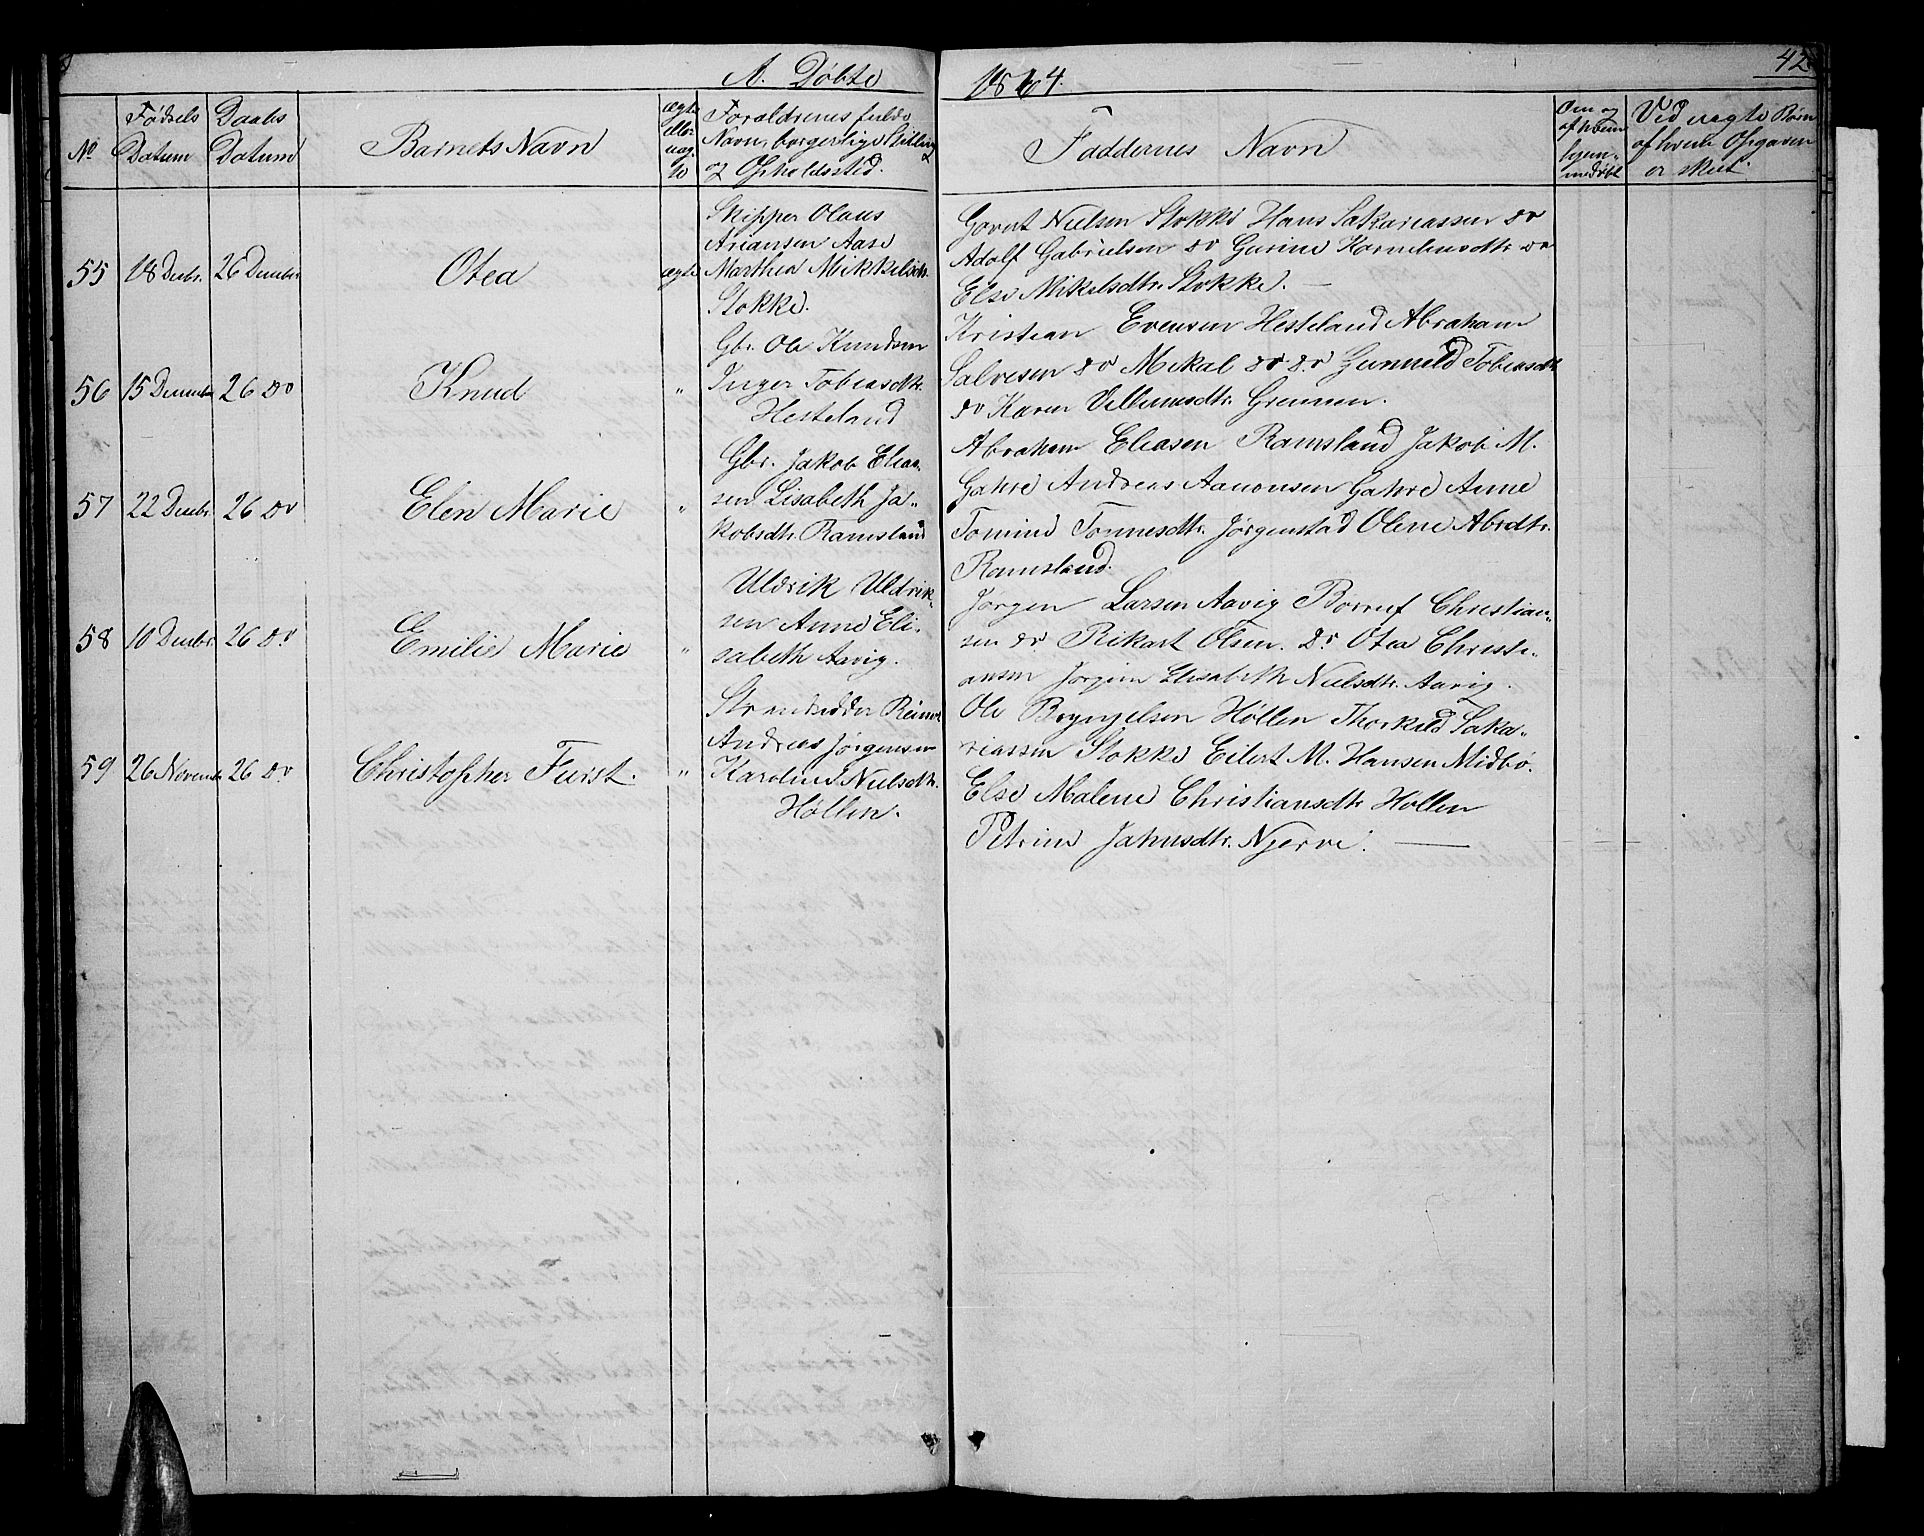 A. Døbte
1864.
42
No
Fødsels Datum
Daabs Datum
Barnets Navn
ægte eller uægte
Forældrenes fulde
Navn, borgerlige Stilling
og Opholdssted.
Faddernes Navn
Om og af hvem hjemmedøbt
Ved uægte Børn
af hvem Opgaven
er skeet
55 18 Decbr. 26 Decembr Otea ægte
Skipper Olaus
Ariansen Aase
Marthea Mikkelsdtr.
Stokke.
Govert Nielsen Stokke Hans Sakariassen do
Adolf Gabrielsen do Gurine Korneliusdtr do
Else Mikelsdtr. Stokke.
56 15 December 26 do Knud "
Gbr. Ole Knudsen
Inger Tobiasdtr.
Hesteland
Kristian Evensen Hesteland Abraham
Salvesen do Mikal do do Gunnild Tobiasdtr
do Karen Villumsdtr. Grennen.
57 22 Decbr. 26 do Elen Marie "
Gbr. Jakob Elia-
sen Lisabeth Ja-
kobsdtr. Ramsland
Abraham Eliasen Ramsland Jakob M.
Gahre Andreas Aanonsen Gahre Anne
Tomine Tønnesdtr. Jørgenstad Olene Abrdtr.
Ramsland.
58 10 Decbr. 26 do Emilie Marie "
Uldrik Uldrik-
sen Anne Eli-
sabeth Aavig.
Jørgen Larsen Aavig Borruf Christian-
sen do Rikart Olsen. Do Otea Christi-
ansen Jørgine Elisabeth Nielsdtr. Aavig.
59 26 November 26 do Christopher Furst. "
Strandsidder Reinert
Andreas Jørgensen
Karoline Nielsdtr.
Høllen.
Ole Bryngelsen Høllen Thorkild Saka-
riassen Stokke Eilert M. Hansen Midbø.
Else Malene Christiansdtr Hollen
Petrine Jahnsdtr. Njerve.